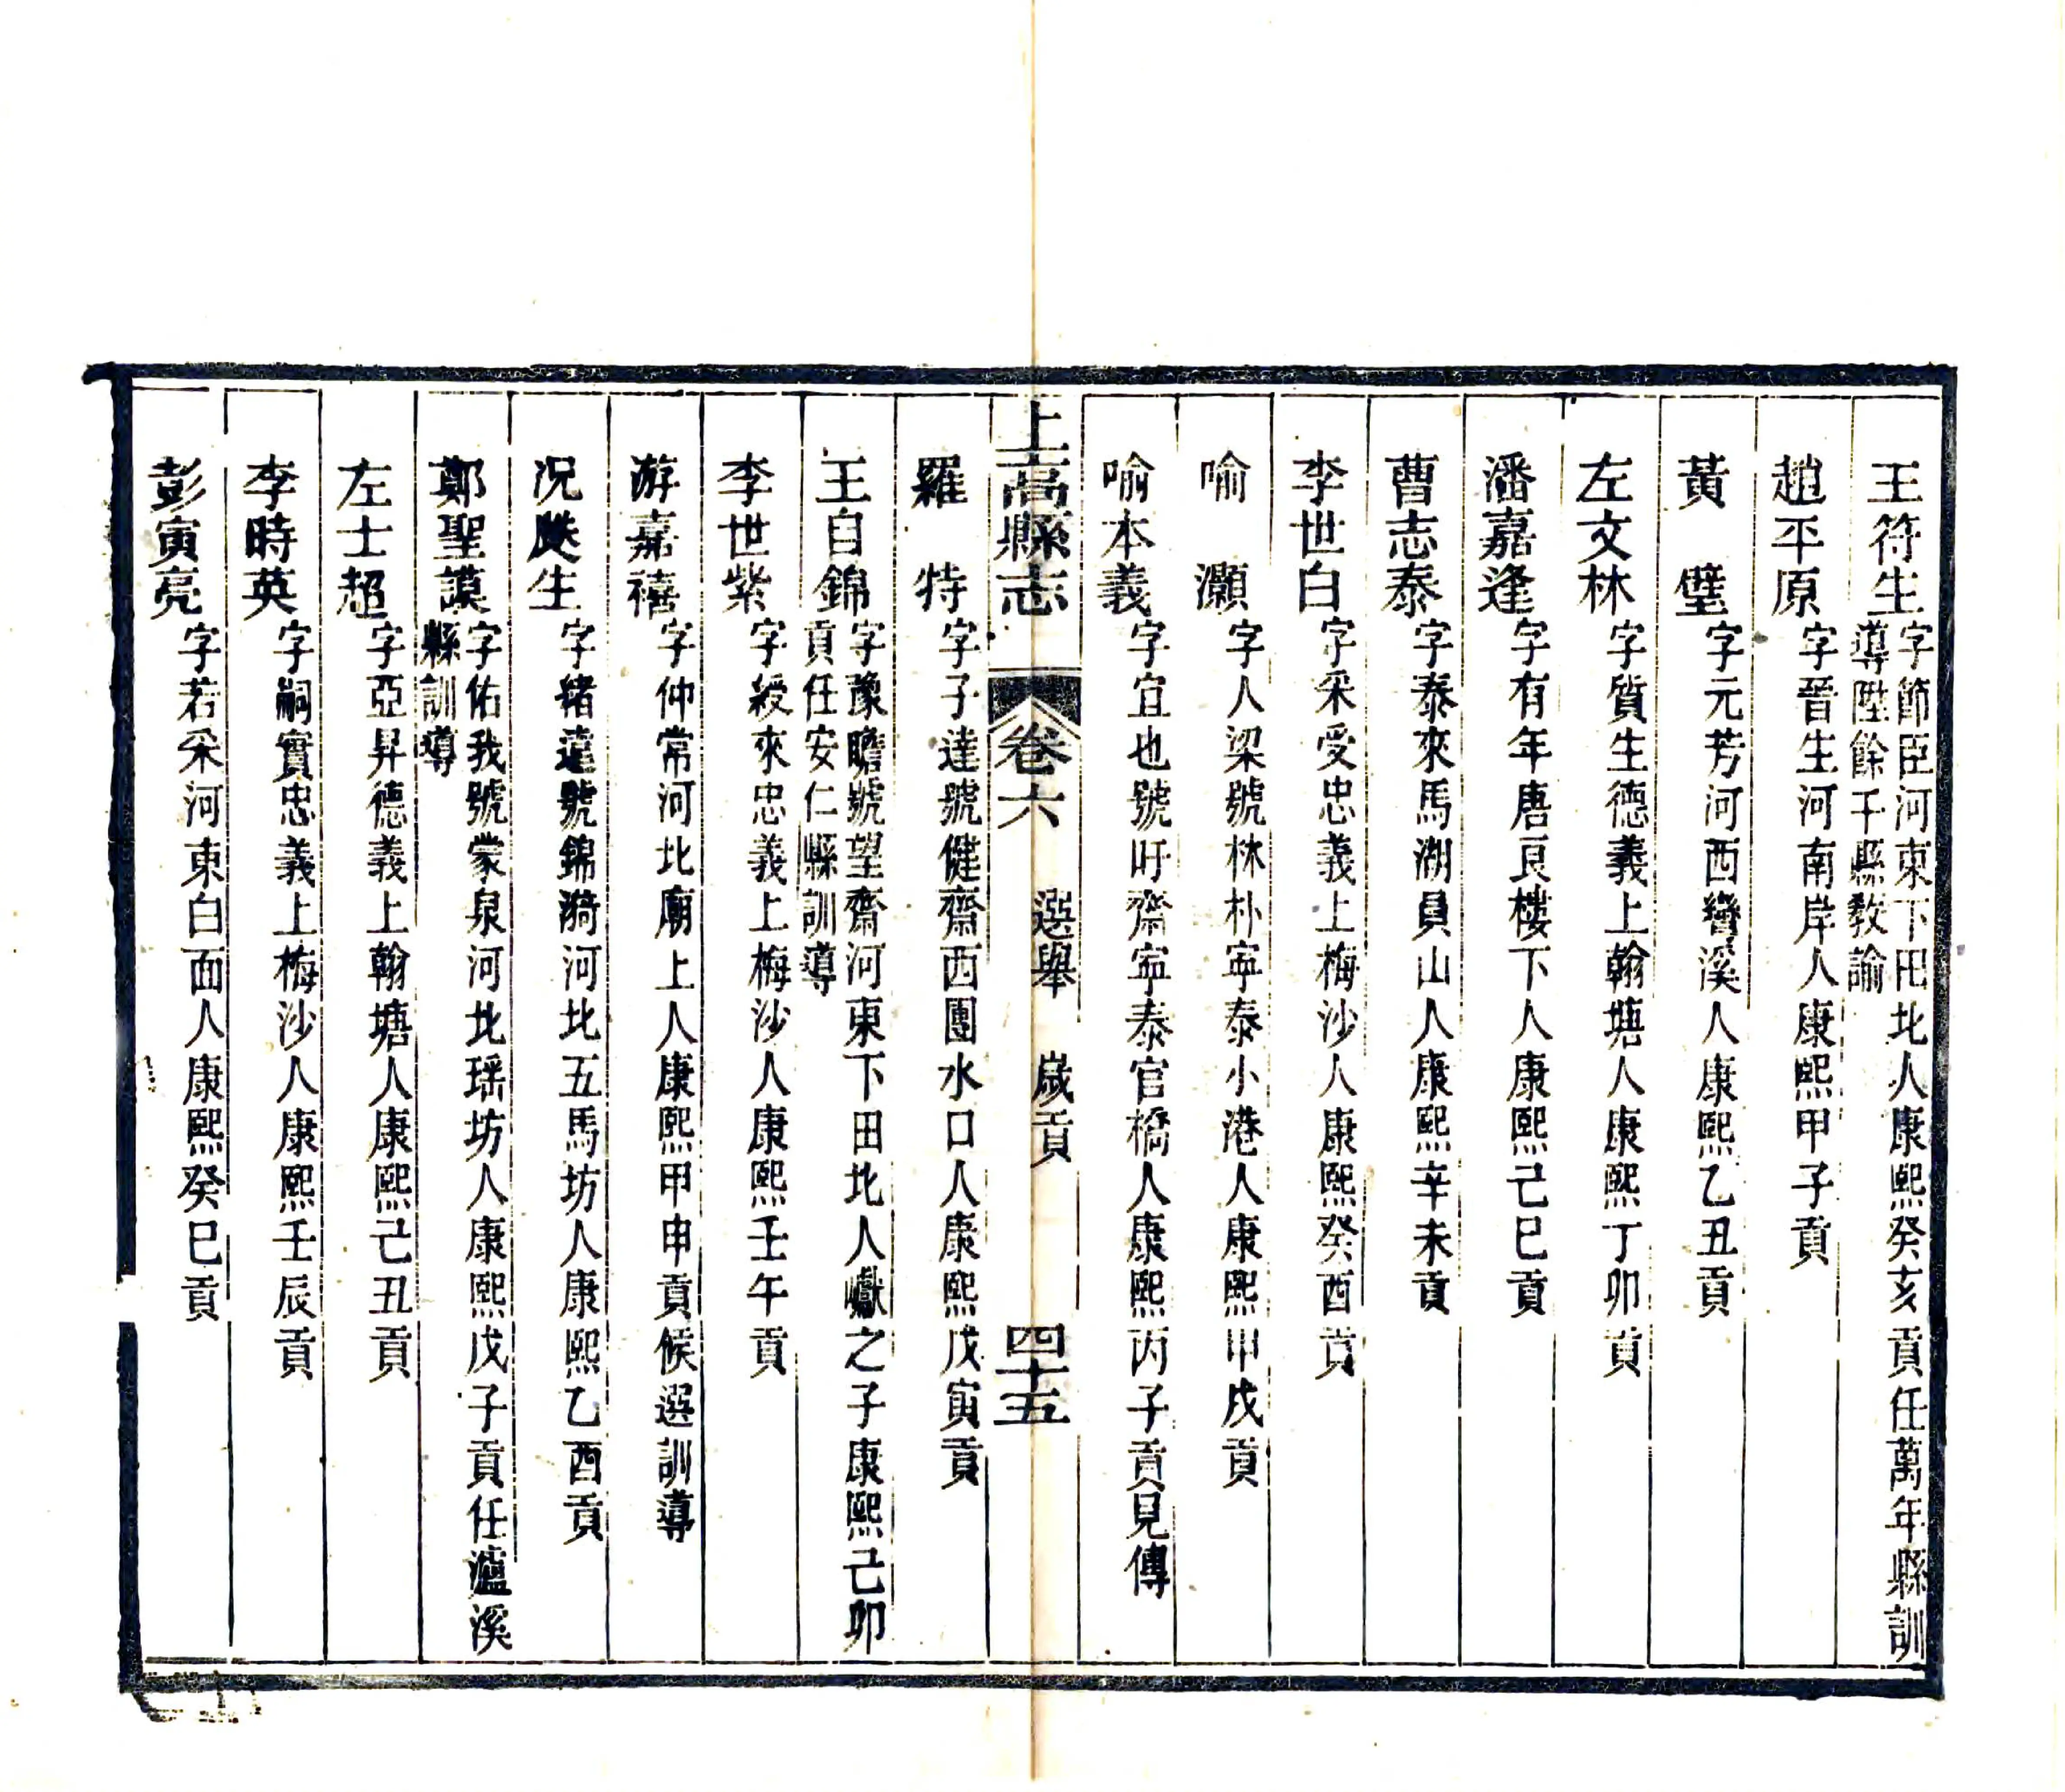 王符生字節臣河東下田北人康熙癸亥貢任萬年縣訓
導陞餘干縣教諭
趙平原字晉生河南岸人康熙甲子貢
黃璧字元芳河西灣溪人康熙乙丑貢
左文林字質生德義上翰塘人康熙丁卯貢
潘嘉逢字有年唐良樓下人康熙己巳貢
曹志泰字泰來馬湖員山人康熙辛未貢
李世白字采受忠義上梅沙人康熙癸酉貢
喻灝字人梁號林朴寧泰小港人康熙甲戌貢
喻本義字宜也號吁齋寧泰官橋人康熙丙子貢見傳
上高縣志 卷六 選舉 歲貢 四十五
羅特字子達號健齋西團水口人康熙戊寅貢
王白錦字豫瞻號望齋河東下田北人巘之子康熙己卯
貢任安仁縣訓導
李世紫字綬來忠義上梅沙人康熙壬午貢
游嘉禧字仲常河北廟上人康熙甲申貢候選訓導
况生字緒遠號錦漪河北五馬坊人康熙乙酉貢
鄭聖謨字佑我號蒙泉河北瑶坊人康熙戊子貢任瀘溪
縣訓導
左士超字亞昇德義上翰塘人康熙己丑貢
李時英字嗣實忠義上梅沙人康熙壬辰貢
彭寅亮字若采河東白面人康熙癸巳貢